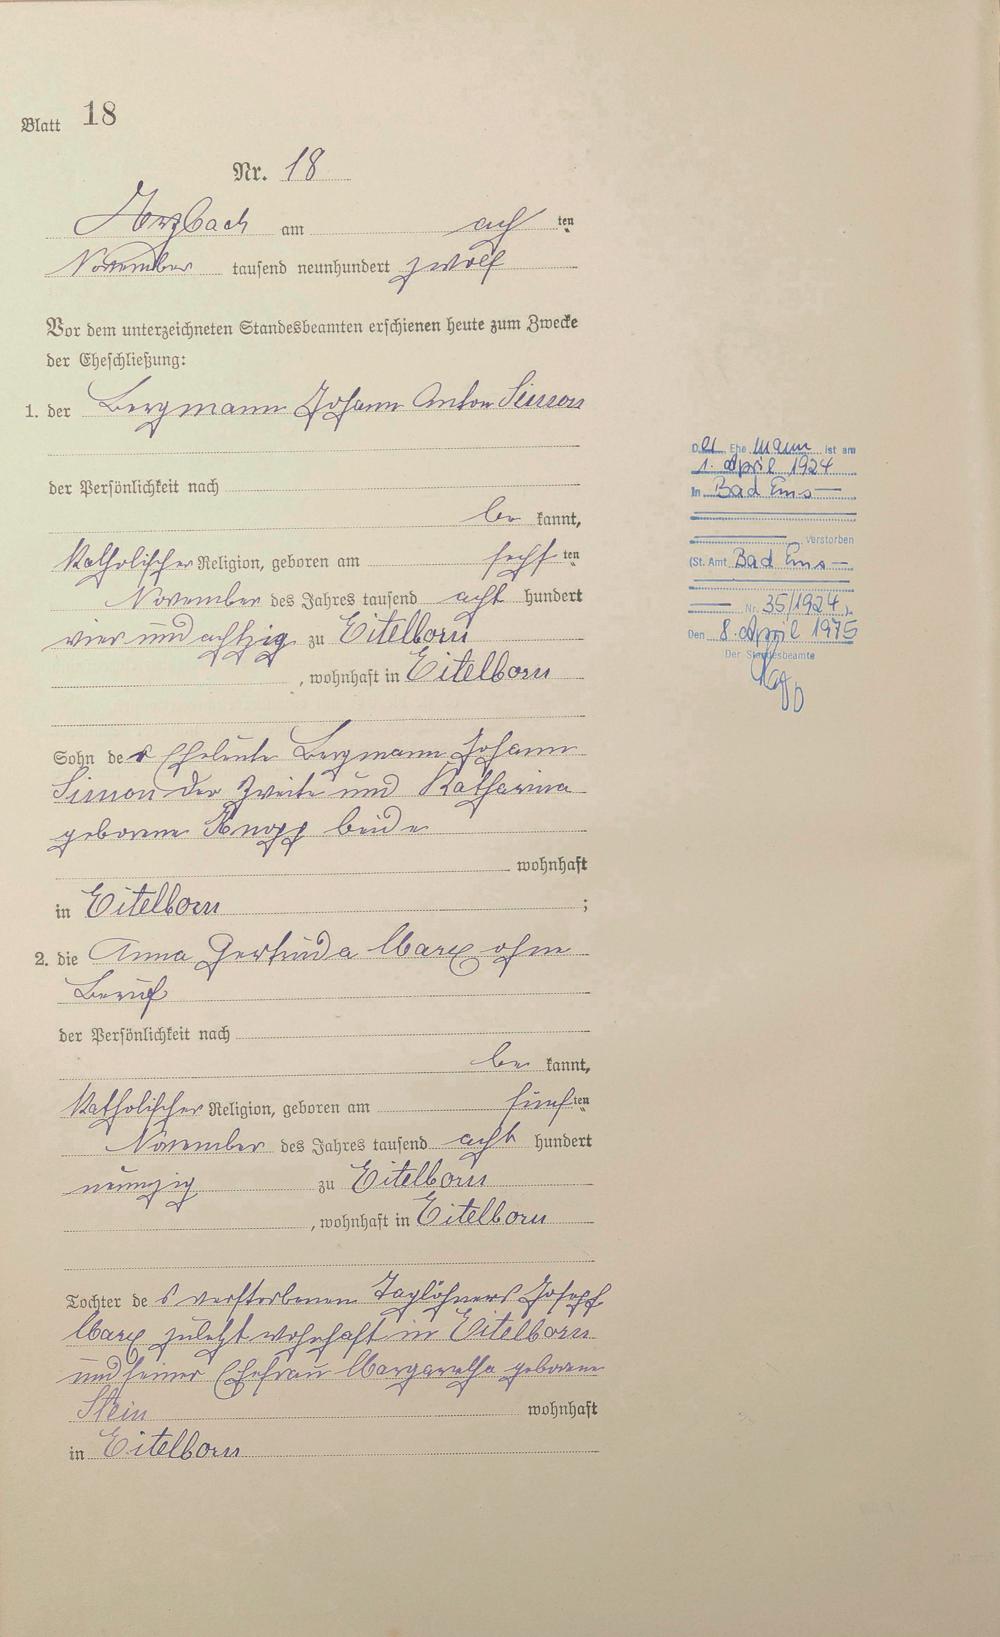 Blatt 18
Nr. 18
Arzbach am ach ten
November tausend neunhundert zwölf
Vor dem unterzeichneten Standesbeamten erschienen heute zum Zwecke
der Eheschließung:
1. der Bergmann Johann Anton Simon
der Persönlichkeit nach
be kannt,
Katholischer Religion, geboren am sechs ten
November des Jahres tausend acht hundert
vier und achtzig zu Eitelborn
, wohnhaft in Eitelborn
Sohn der Eheleute Bergmann Johann
Simon der Zweite und Katharina
geborene Knopp beide
wohnhaft
in Eitelborn ;
2. die Anna Gertruda Marx ohne
Beruf
der Persönlichkeit nach
be kannt,
Katholischer Religion, geboren am fünf ten
November des Jahres tausend acht hundert
neunzig zu Eitelborn
, wohnhaft in Eitelborn
Tochter des verstorbenen Taglöhners Joseph
Marx zuletzt wohnhaft in Eitelborn
und seiner Ehefrau Margaretha geborene
Stein wohnhaft
in Eitelborn
Der Ehe Mann ist am
1. April 1924
in Bad Ems
verstorben
(St. Amt Bad Ems
Nr. 35/1924).
Den 8. April 1975
Der Standesbeamte